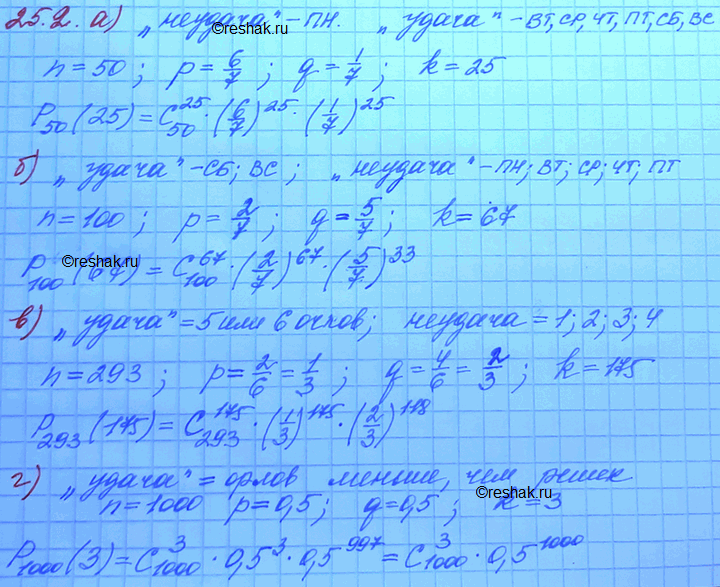 25.2. а) „неудача" – ПН. „удача" – ВТ, СР, ЧТ, ПТ, СБ, ВС
©reshak.ru
n = 50; p = 6/7; q = 1/7; k = 25
P₅₀(25) = C₅₀²⁵ · (6/7)²⁵ · (1/7)²⁵
б) „удача" – СБ; ВС; „неудача" – ПН; ВТ; СР; ЧТ; ПТ
n = 100; p = 2/7; q = 5/7; k = 67
©reshak.ru
P₁₀₀(67) = C₁₀₀⁶⁷ · (2/7)⁶⁷ · (5/7)³³
в) „удача" = 5 или 6 очков; неудача = 1; 2; 3; 4
n = 293; p = 2/6 = 1/3; q = 4/6 = 2/3; k = 175
P₂₉₃(175) = C₂₉₃¹⁷⁵ · (1/3)¹⁷⁵ · (2/3)¹¹⁸
г) „удача" = орлов меньше, чем решек
©reshak.ru
n = 1000 p = 0,5; q = 0,5; k = 3
P₁₀₀₀(3) = C₁₀₀₀³ · 0,5³ · 0,5⁹⁹⁷ = C₁₀₀₀³ · 0,5¹⁰⁰⁰